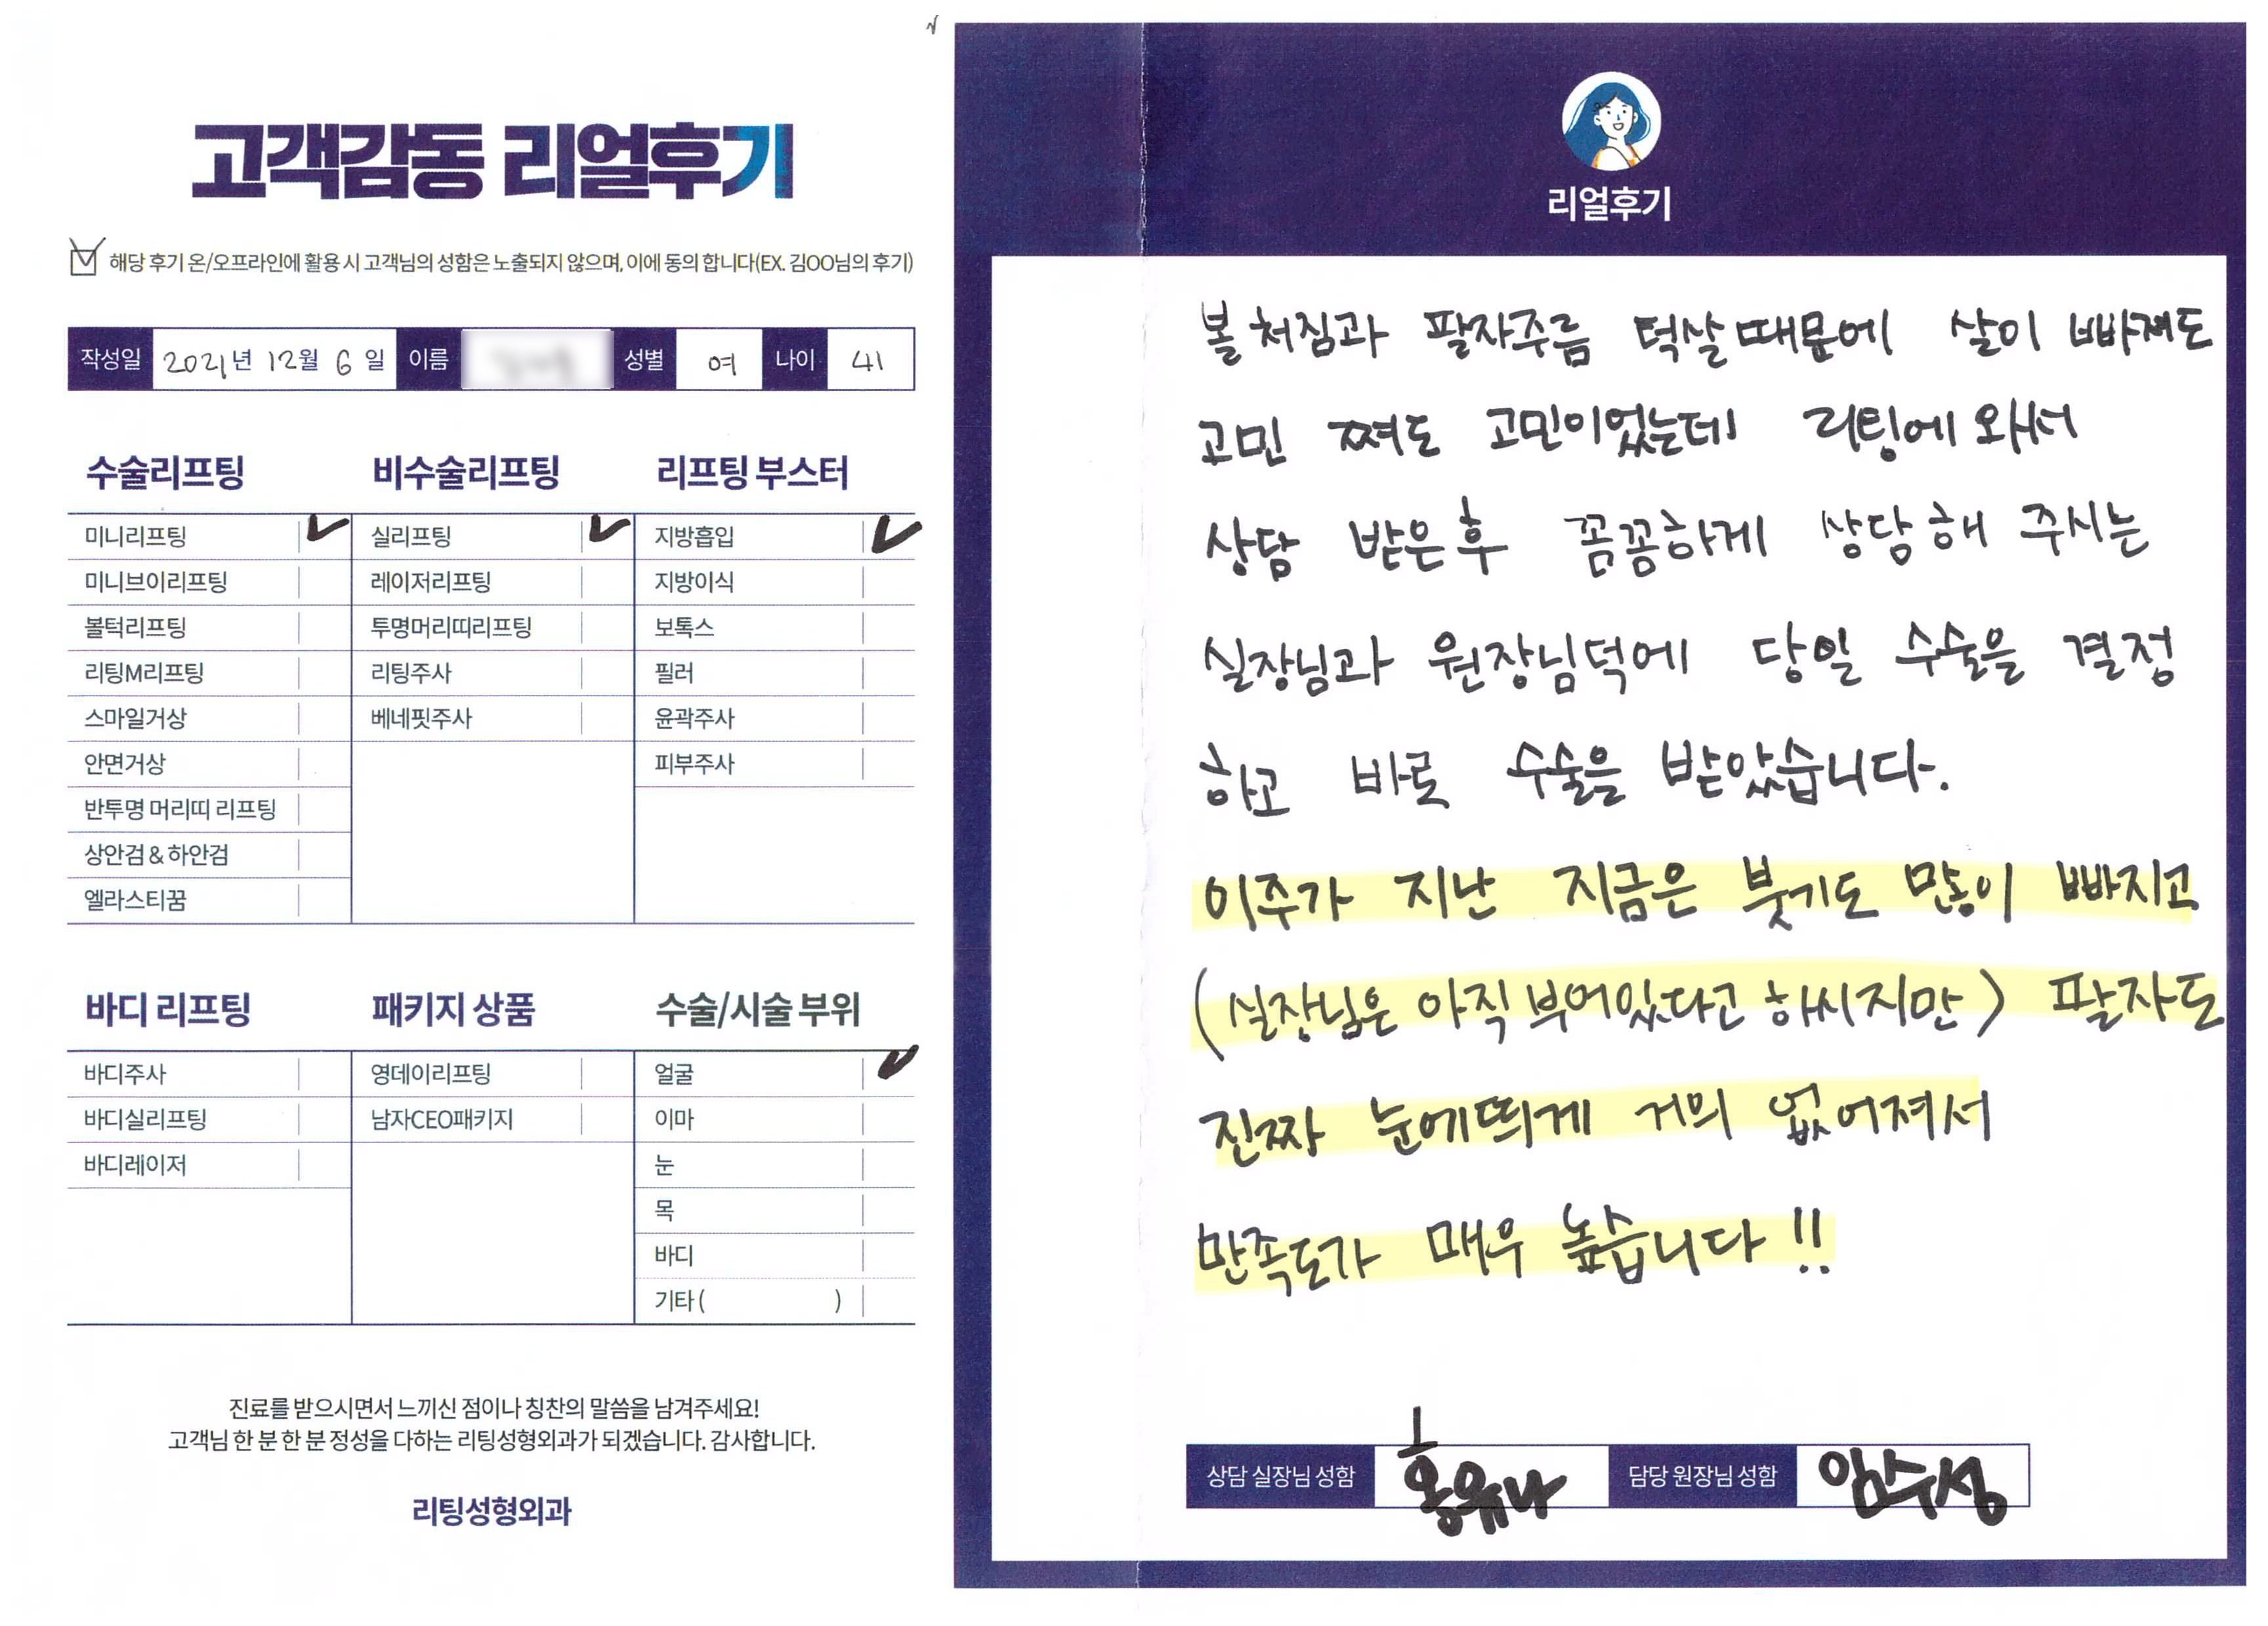 고객감동 리얼후기
해당 후기 온/오프라인에 활용 시 고객님의 성함은 노출되지 않으며, 이에 동의 합니다(EX. 김OO님의 후기)
작성일 2021년 12월 6일 이름 성별 여 나이 41
수술리프팅
미니리프팅
미니브이리프팅
볼턱리프팅
리팅M리프팅
스마일거상
안면거상
반투명 머리띠 리프팅
상안검 & 하안검
엘라스티꿈
비수술리프팅
실리프팅
레이저리프팅
투명머리띠리프팅
리팅주사
베네핏주사
리프팅 부스터
지방흡입
지방이식
보톡스
필러
윤곽주사
피부주사
바디 리프팅
바디주사
바디실리프팅
바디레이저
패키지 상품
영데이리프팅
남자CEO패키지
수술/시술 부위
얼굴
이마
눈
목
바디
기타 ( )
진료를 받으시면서 느끼신 점이나 칭찬의 말씀을 남겨주세요!
고객님 한 분 한 분 정성을 다하는 리팅성형외과가 되겠습니다. 감사합니다.
리팅성형외과
리얼후기
볼처짐과 팔자주름 턱살때문에 살이 빠져도
고민 쪄도 고민이었는데 리팅에 와서
상담 받은후 꼼꼼하게 상담해 주시는
실장님과 원장님덕에 당일 수술을 결정
하고 바로 수술을 받았습니다.
이주가 지난 지금은 붓기도 많이 빠지고
(실장님은 아직 부어있다고 하시지만) 팔자도
진짜 눈에띄게 거의 없어져서
만족도가 매우 높습니다 !!
상담 실장님 성함 홍유나 담당 원장님 성함 임수성